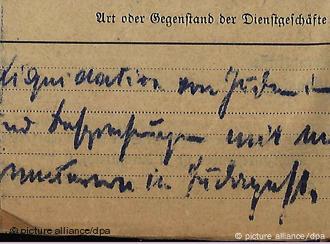 Art oder Gegenstand der Dienstgeschäfte
Liquidation von Juden in
und Besprechungen mit
in Budapest.
© picture alliance/dpa
© picture alliance/dpa